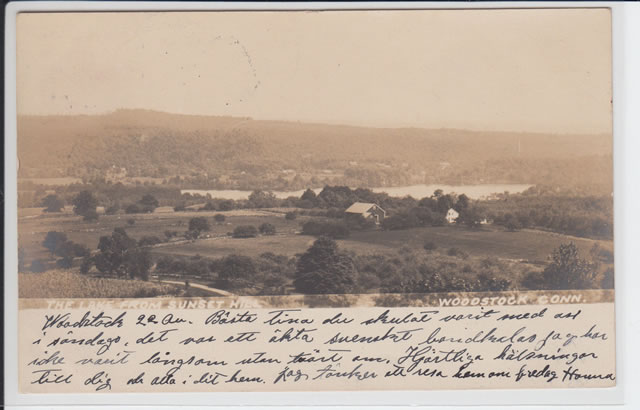 THE LAKE FROM SUNSET HILL WOODSTOCK CONN.
Woodstock 22 Au. Bäste tina du skulat varit med oss
i söndags, det var ett äkta svenskt bondkalas jag har
icke varit långsom utan tvärt om. Hjärtliga hälsningar
till dig och alla i dit hem. Jag tänker att resa hem om fredag Hanna